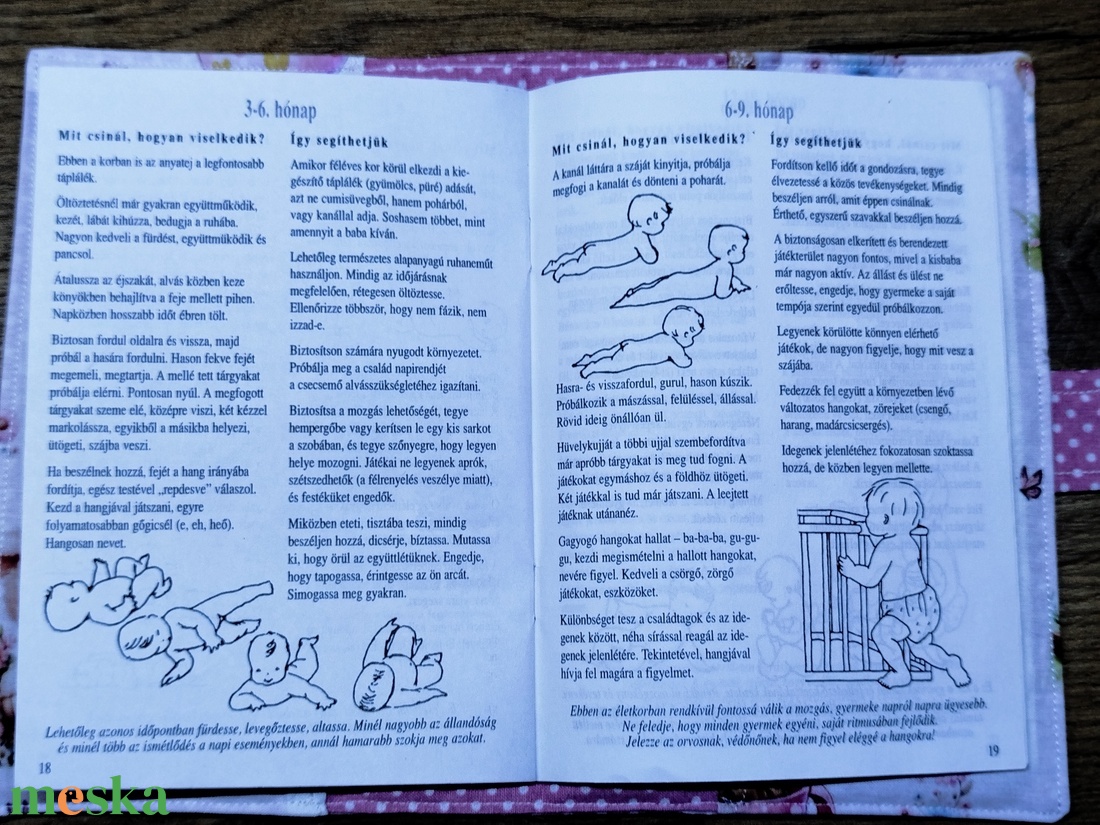 3-6. hónap
Mit csinál, hogyan viselkedik?
Ebben a korban is az anyatej a legfontosabb
táplálék.
Öltöztetésnél már gyakran együttműködik,
kezét, lábát kihúzza, bedugja a ruhába.
Nagyon kedveli a fürdést, együttműködik és
pancsol.
Átalussza az éjszakát, alvás közben keze
könyökben behajlítva a feje mellett pihen.
Napközben hosszabb időt ébren tölt.
Biztosan fordul oldalra és vissza, majd
próbál a hasára fordulni. Hason fekve fejét
megemeli, megtartja. A mellé tett tárgyakat
próbálja elérni. Pontosan nyúl. A megfogott
tárgyakat szeme elé, középre viszi, két kézzel
markolássza, egyikből a másikba helyezi,
ütögeti, szájba veszi.
Ha beszélnek hozzá, fejét a hang irányába
fordítja, egész testével „repdesve” válaszol.
Kezd a hangjával játszani, egyre
folyamatosabban gőgicsél (e, eh, heő).
Hangosan nevet.
Így segíthetjük
Amikor féléves kor körül elkezdi a kie-
gészítő táplálék (gyümölcs, püré) adását,
azt ne cumisüvegből, hanem pohárból,
vagy kanállal adja. Soshasem többet, mint
amennyit a baba kíván.
Lehetőleg természetes alapanyagú ruhaneműt
használjon. Mindig az időjárásnak
megfelelően, rétegesen öltöztesse.
Ellenőrizze többször, hogy nem fázik, nem
izzad-e.
Biztosítson számára nyugodt környezetet.
Próbálja meg a család napirendjét
a csecsemő alvásszükségletéhez igazítani.
Biztosítsa a mozgás lehetőségét, tegye
hempergőbe vagy kerítsen le egy kis sarkot
a szobában, és tegye szőnyegre, hogy legyen
helye mozogni. Játékai ne legyenek aprók,
szétszedhetők (a félrenyelés veszélye miatt),
és festéküket engedők.
Miközben eteti, tisztába teszi, mindig
beszéljen hozzá, dicsérje, bíztassa. Mutassa
ki, hogy örül az együttlétüknek. Engedje,
hogy tapogassa, érintgesse az ön arcát.
Simogassa meg gyakran.
Lehetőleg azonos időpontban fürdesse, levegőztesse, altassa. Minél nagyobb az állandóság
és minél több az ismétlődés a napi eseményekben, annál hamarabb szokja meg azokat.
18
6-9. hónap
Mit csinál, hogyan viselkedik?
A kanál láttára a száját kinyitja, próbálja
megfogi a kanalát és dönteni a poharát.
Hasra- és visszafordul, gurul, hason kúszik.
Próbálkozik a mászással, felüléssel, állással.
Rövid ideig önállóan ül.
Hüvelykujját a többi ujjal szembefordítva
már apróbb tárgyakat is meg tud fogni. A
játékokat egymáshoz és a földhöz ütögeti.
Két játékkal is tud már játszani. A leejtett
játéknak utánanéz.
Gagyogó hangokat hallat – ba-ba-ba, gu-gu-
gu, kezdi megismételni a hallott hangokat,
nevére figyel. Kedveli a csörgő, zörgő
játékokat, eszközöket.
Különbséget tesz a családtagok és az ide-
genek között, néha sírással reagál az ide-
genek jelenlétére. Tekintetével, hangjával
hívja fel magára a figyelmet.
Így segíthetjük
Fordítson kellő időt a gondozásra, tegye
élvezetessé a közös tevékenységeket. Mindig
beszéljen arról, amit éppen csinálnak.
Érthető, egyszerű szavakkal beszéljen hozzá.
A biztonságosan elkerített és berendezett
játékterület nagyon fontos, mivel a kisbaba
már nagyon aktív. Az állást és ülést ne
erőltesse, engedje, hogy gyermeke a saját
tempója szerint egyedül próbálkozzon.
Legyenek körülötte könnyen elérhető
játékok, de nagyon figyelje, hogy mit vesz a
szájába.
Fedezzék fel együtt a környezetben lévő
változatos hangokat, zörejeket (csengő,
harang, madárcsicsergés).
Idegenek jelenlétéhez fokozatosan szoktassa
hozzá, de közben legyen mellette.
Ebben az életkorban rendkívül fontossá válik a mozgás, gyermeke napról napra ügyesebb.
Ne feledje, hogy minden gyermek egyéni, saját ritmusában fejlődik.
Jelezze az orvosnak, védőnőnek, ha nem figyel eléggé a hangokra!
19
meska